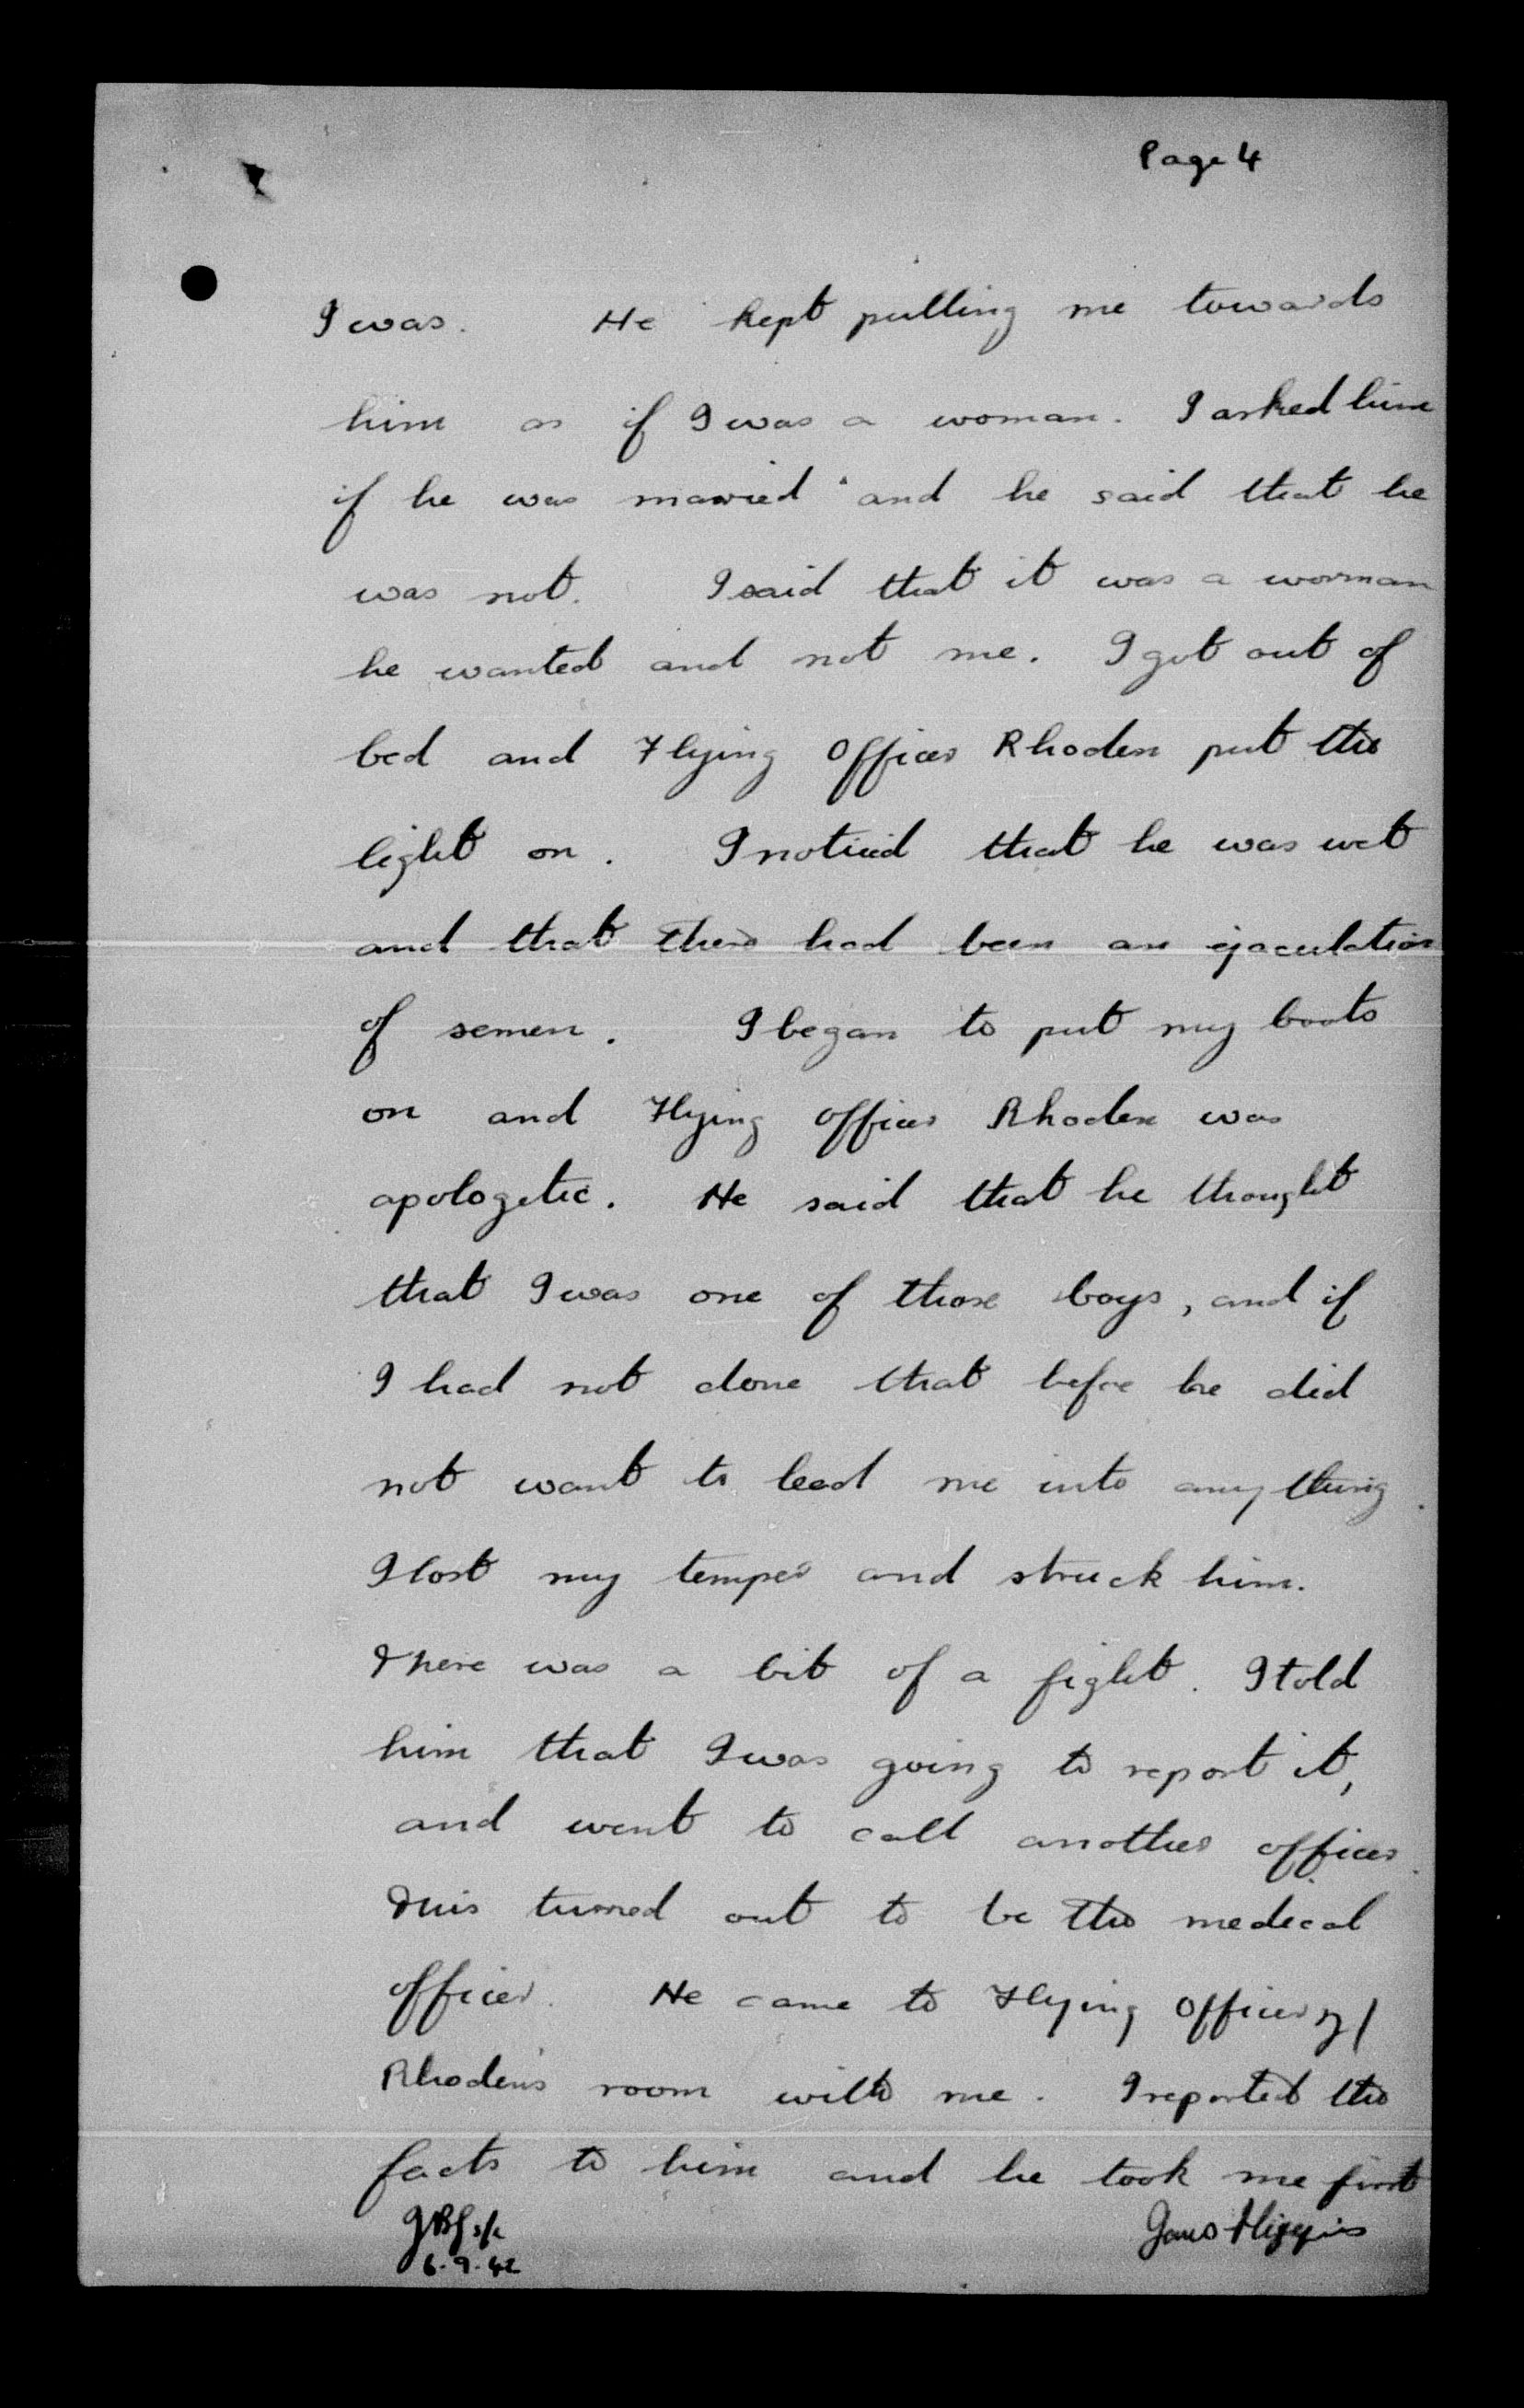 Page 4
I was. He kept pulling me towards
him as if I was a woman. I asked him
if he was married and he said that he
was not. I said that it was a woman
he wanted and not me. I got out of
bed and Flying Officer Rhoden put the
light on. I noticed that he was wet
and that there had been an ejaculation
of semen. I began to put my boots
on and Flying Officer Rhoden was
apologetic. He said that he thought
that I was one of those boys, and if
I had not done that before he did
not want to lead me into anything.
I lost my temper and struck him.
There was a bit of a fight. I told
him that I was going to report it,
and went to call another officer.
This turned out to be the medical
officer. He came to Flying Officer
Rhoden's room with me. I reported the
facts to him and he took me first
Higgins
6.9.42